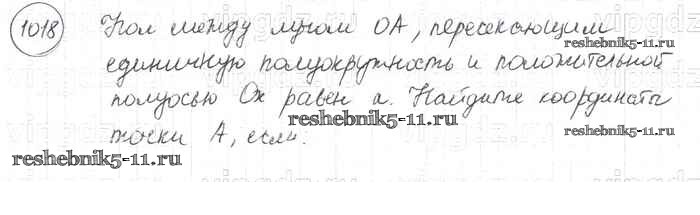 1018 Угол между лучом OA, пересекающим
reshebnik5-11.ru
единичную полуокружность и положительной
полуосью Ox равен α. Найдите координаты
reshebnik5-11.ru
точки A, если:
reshebnik5-11.ru
reshebnik5-11.ru